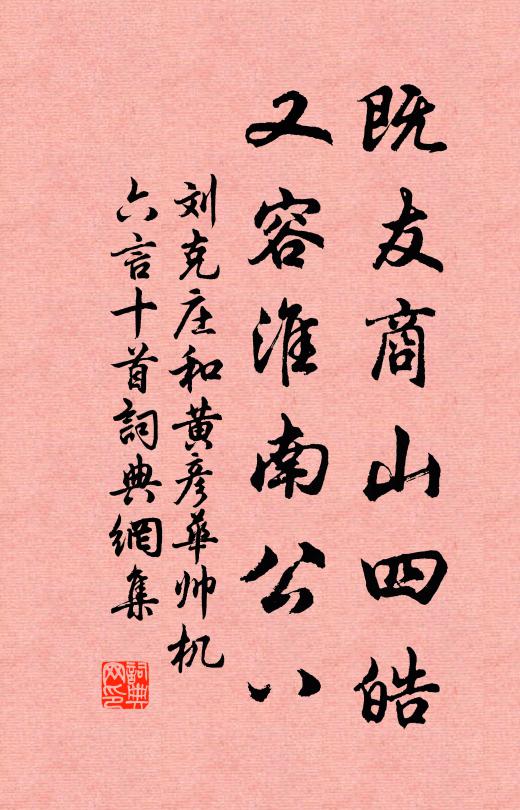 既友商山四皓
又容淮南公八
刘克庄和黄彦華帅机
六言十首詞典網集
詞典
网印